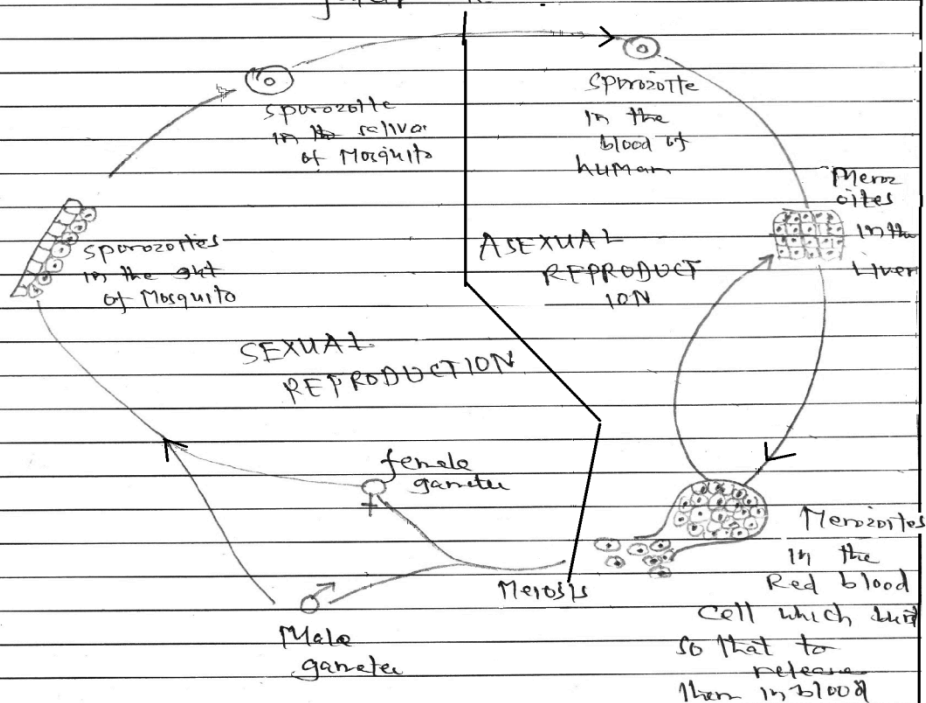 sporozoite
in the saliva
of Mosquito
sporozoite
in the
blood of
human
Meroz
oites
in the
Liver
sporozoites
in the gut
of Mosquito
ASEXUAL
REPRODUCT
ION
SEXUAL
REPRODUCTION
female
gametes
Meiosis
Male
gametes
Merozoites
in the
Red blood
cell which
so that to
release
them in blood